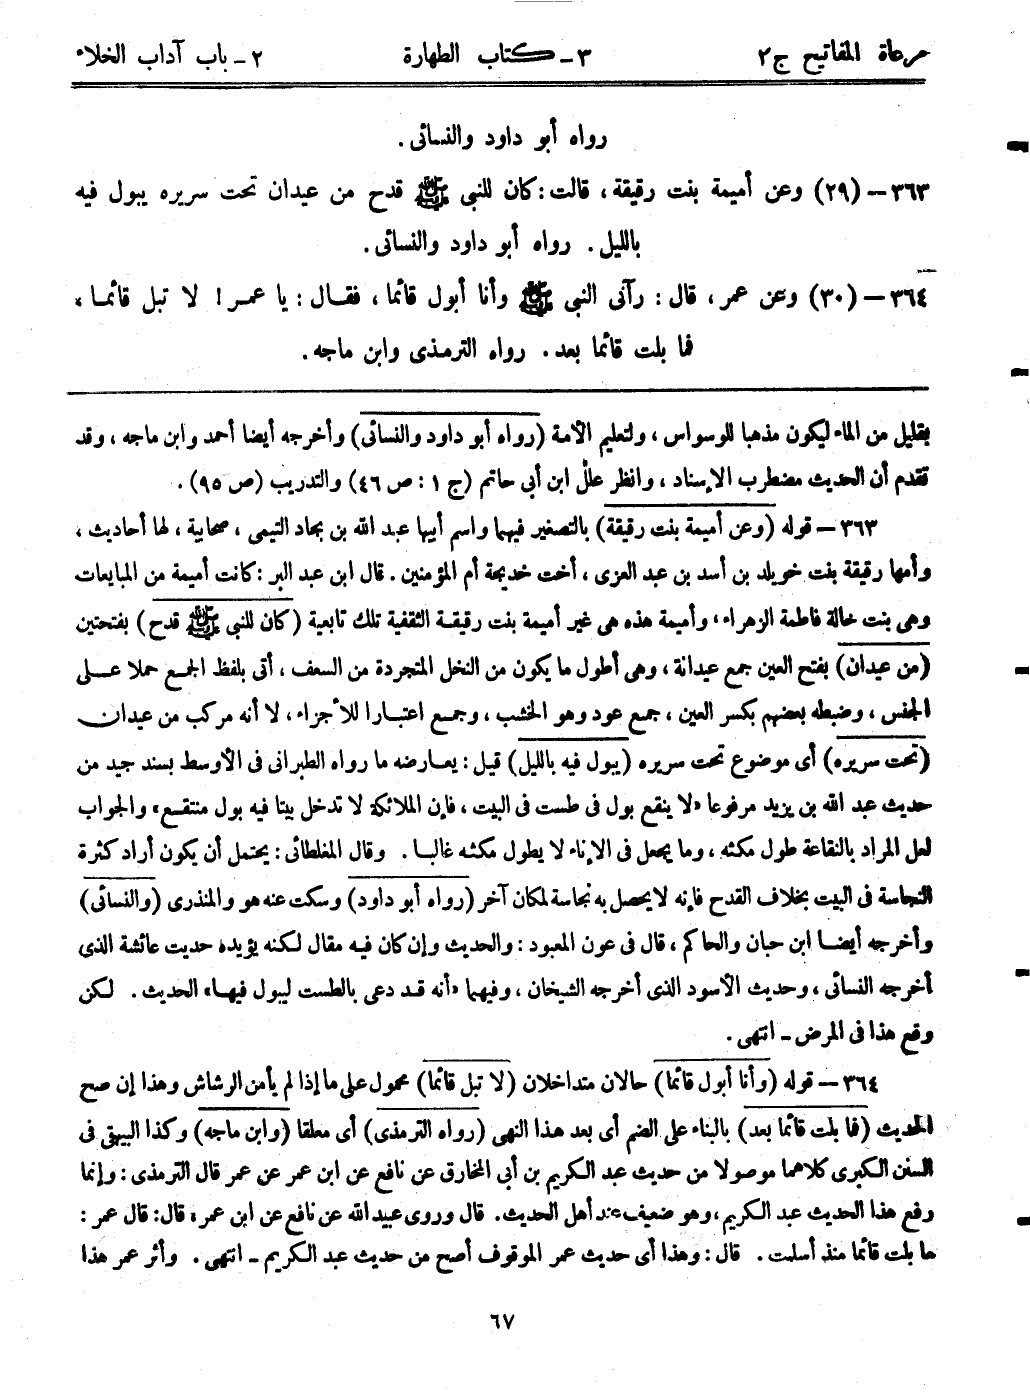 مرعاة المفاتيح ج٢ ٣ - كتاب الطهارة ٢ - باب آداب الخلاء
رواه أبو داود والنسائى .
٣٦٣ - (٢٩) وعن أميمة بنت رقيقة ، قالت : كان للنبي ﷺ قدح من عيدان تحت سريره يبول فيه
بالليل . رواه أبو داود والنسائى .
٣٦٤ - (٣٠) وعن عمر ، قال : رآنى النبي ﷺ وأنا أبول قائما ، فقال : يا عمر ! لا تبل قائما ،
فما بلت قائما بعد . رواه الترمذى وابن ماجه .
بقليل من الماء ليكون مذهبا للوسواس ، ولتعليم الامة (رواه أبو داود والنسائى) وأخرجه أيضا أحمد وابن ماجه ، وقد
تقدم أن الحديث مضطرب الاسناد ، وانظر علل ابن أبى حاتم (ج ١ : ص ٤٦) والتدريب (ص ٩٥) .
٣٦٣ - قوله (وعن أميمة بنت رقيقة) بالتصغير فيهما واسم أبيها عبد الله بن بجاد التيمى ، صحابية ، لها أحاديث ،
وأمها رقيقة بنت خويلد بن أسد بن عبد العزى ، أخت خديجة أم المؤمنين . قال ابن عبد البر : كانت أميمة من المبايعات
وهى بنت خالة فاطمة الزهراء ، وأميمة هذه هى غير أميمة بنت رقيقة الثقفية تلك تابعية (كان للنبي ﷺ قدح) بفتحتين
(من عيدان) بفتح العين جمع عيدانة ، وهى أطول ما يكون من النخل المتجردة من السعف ، أتى بلفظ الجمع حملا على
الجنس ، وضبطه بعضهم بكسر العين ، جمع عود وهو الخشب ، وجمع اعتبارا للأجزاء ، لا أنه مركب من عيدان
(تحت سريره) أى موضوع تحت سريره (يبول فيه بالليل) قيل : يعارضه ما رواه الطبرانى فى الأوسط بسند جيد من
حديث عبد الله بن يزيد مرفوعا «لا ينقع بول فى طست فى البيت ، فإن الملائكة لا تدخل بيتا فيه بول منتقع» والجواب
لعل المراد بالنقاعة طول مكثه ، وما يجعل فى الاناء لا يطول مكثه غالبا . وقال المغلطائى : يحتمل أن يكون أراد كثرة
النجاسة فى البيت بخلاف القدح فإنه لا يحصل به نجاسة لمكان آخر (رواه أبو داود) وسكت عنه هو والمنذرى (والنسائى)
وأخرجه أيضا ابن حبان والحاكم ، قال فى عون المعبود : والحديث وإن كان فيه مقال لكنه يؤيده حديث عائشة الذى
أخرجه النسائى ، وحديث الأسود الذى أخرجه الشيخان ، وفيهما «أنه قد دعى بالطست ليبول فيها» الحديث . لكن
وقع هذا فى المرض - انتهى .
٣٦٤ - قوله (وأنا أبول قائما) حالان متداخلان (لا تبل قائما) محمول على ما إذا لم يأمن الرشاش وهذا إن صح
الحديث (فما بلت قائما بعد) بالبناء على الضم أى بعد هذا النهى (رواه الترمذى) أى معلقا (وابن ماجه) وكذا البيهقى فى
السنن الكبرى كلاهما موصولا من حديث عبد الكريم بن أبى المخارق عن نافع عن ابن عمر عن عمر قال الترمذى : وإنما
رفع هذا الحديث عبد الكريم ، وهو ضعيف عند أهل الحديث . قال وروى عبيد الله عن نافع عن ابن عمر ، قال : قال عمر :
ما بلت قائما منذ أسلمت . قال : وهذا أى حديث عمر الموقوف أصح من حديث عبد الكريم - انتهى . وأثر عمر هذا
٦٧